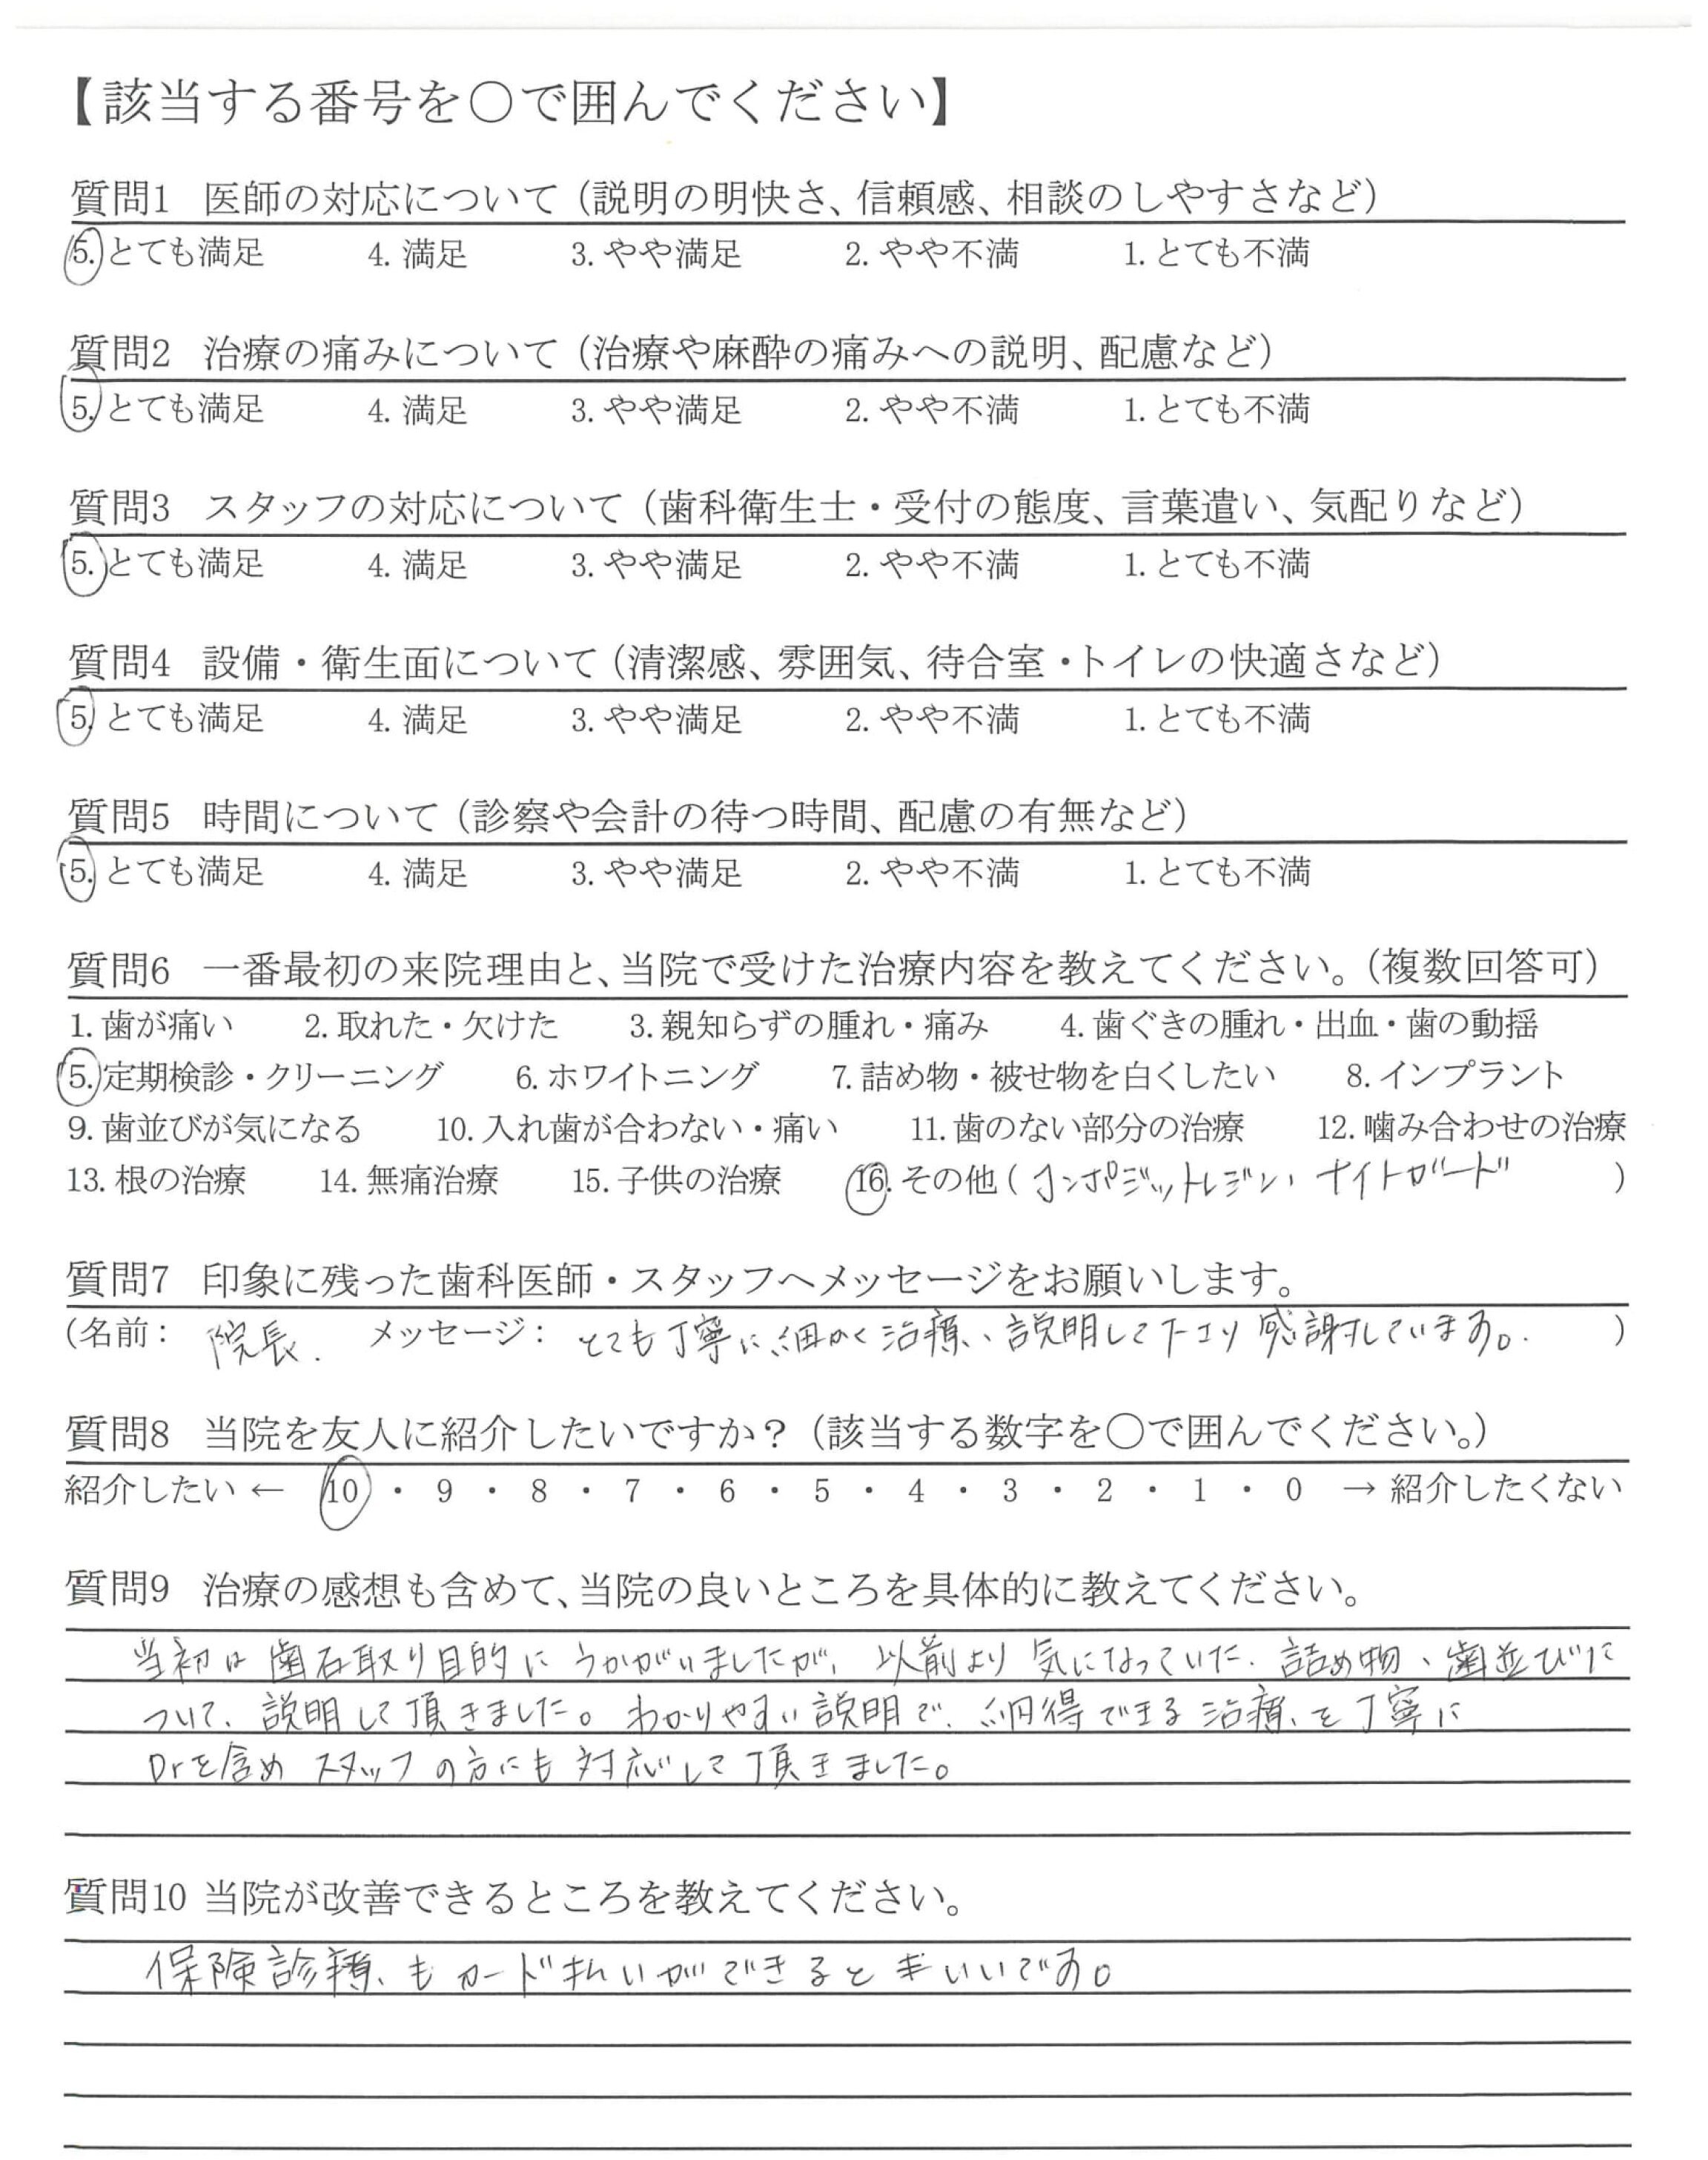 【該当する番号を○で囲んでください】
質問1 医師の対応について（説明の明快さ、信頼感、相談のしやすさなど）
5. とても満足 4. 満足 3. やや満足 2. やや不満 1. とても不満
質問2 治療の痛みについて（治療や麻酔の痛みへの説明、配慮など）
5. とても満足 4. 満足 3. やや満足 2. やや不満 1. とても不満
質問3 スタッフの対応について（歯科衛生士・受付の態度、言葉遣い、気配りなど）
5. とても満足 4. 満足 3. やや満足 2. やや不満 1. とても不満
質問4 設備・衛生面について（清潔感、雰囲気、待合室・トイレの快適さなど）
5. とても満足 4. 満足 3. やや満足 2. やや不満 1. とても不満
質問5 時間について（診察や会計の待つ時間、配慮の有無など）
5. とても満足 4. 満足 3. やや満足 2. やや不満 1. とても不満
質問6 一番最初の来院理由と、当院で受けた治療内容を教えてください。（複数回答可）
1. 歯が痛い 2. 取れた・欠けた 3. 親知らずの腫れ・痛み 4. 歯ぐきの腫れ・出血・歯の動揺
5. 定期検診・クリーニング 6. ホワイトニング 7. 詰め物・被せ物を白くしたい 8. インプラント
9. 歯並びが気になる 10. 入れ歯が合わない・痛い 11. 歯のない部分の治療 12. 噛み合わせの治療
13. 根の治療 14. 無痛治療 15. 子供の治療 16. その他（コンポジットレジン、ナイトガード）
質問7 印象に残った歯科医師・スタッフへメッセージをお願いします。
（名前： 院長. メッセージ： とても丁寧に細かく治療、説明して下さり感謝しています。）
質問8 当院を友人に紹介したいですか？（該当する数字を○で囲んでください。）
紹介したい ← 10 ・ 9 ・ 8 ・ 7 ・ 6 ・ 5 ・ 4 ・ 3 ・ 2 ・ 1 ・ 0 → 紹介したくない
質問9 治療の感想も含めて、当院の良いところを具体的に教えてください。
当初は歯石取り目的にうかがいましたが、以前より気になっていた、詰め物、歯並びに
ついて、説明して頂きました。わかりやすい説明で、納得できる治療を丁寧に
Drを含めスタッフの方にも対応して頂きました。
質問10 当院が改善できるところを教えてください。
保険診療もカード払いができるといいです。